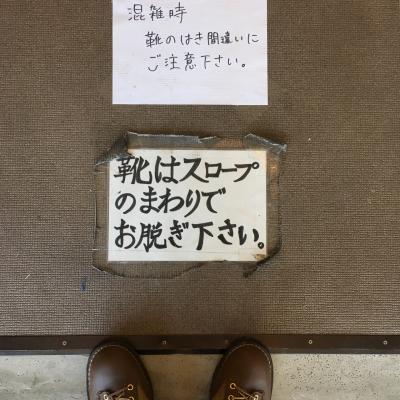 混雑時
靴のはき間違いに
ご注意下さい。
靴はスロープ
のまわりで
お脱ぎ下さい。